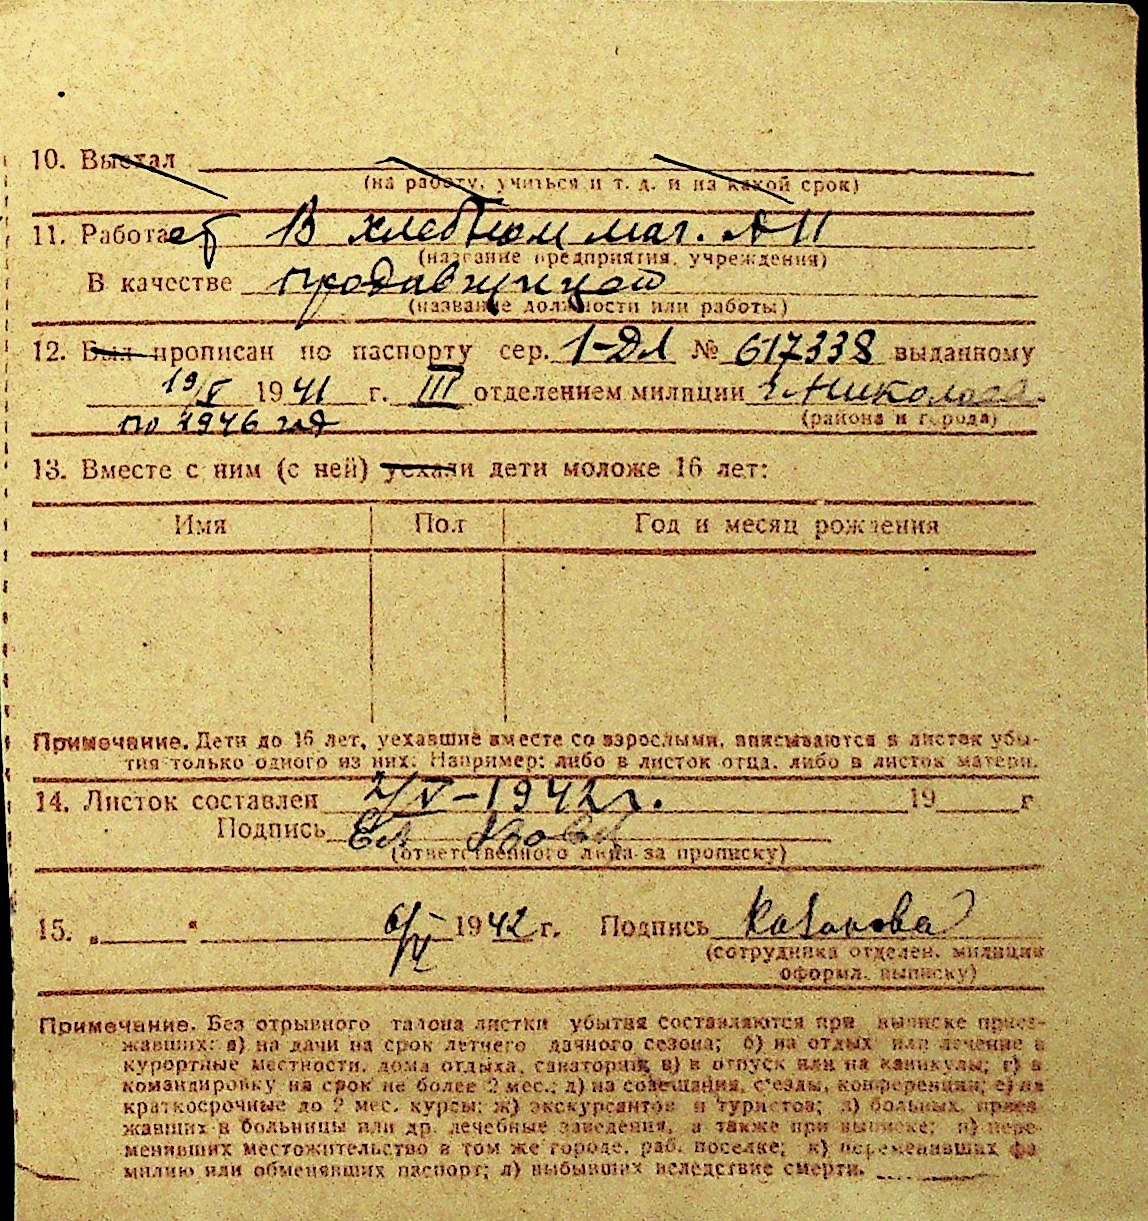 10. Выехал
(на работу, учиться и т. д. и на какой срок)
11. Работает В хлебном маг. № 11
(название предприятия, учреждения)
В качестве продавщицей
(название должности или работы)
12. Был прописан по паспорту сер. 1-ДЛ № 617338 выданному
19/V 1941 г. III отделением милиции г. Николаев
по 1946 год (района и города)
13. Вместе с ним (с ней) уехали дети моложе 16 лет:
Имя Пол Год и месяц рождения
Примечание. Дети до 16 лет, уехавшие вместе со взрослыми, вписываются в листок убы-
тия только одного из них. Например: либо в листок отца, либо в листок матери.
14. Листок составлен 2/V-1942 г. 19 г
Подпись
(ответственного лица за прописку)
15. „ “ 6/VI 1942 г. Подпись Казакова
(сотрудника отделен. милиции
оформл. выписку)
Примечание. Без отрывного талона листки убытия составляются при выписке приез-
жавших: а) на дачи на срок летнего дачного сезона; б) на отдых или лечение в
курортные местности, дома отдыха, санатории; в) в отпуск или на каникулы; г) в
командировку на срок не более 2 мес.; д) на совещания, съезды, конференции; е) на
краткосрочные до 2 мес. курсы; ж) экскурсантов и туристов; з) больных, приез-
жавших в больницы или др. лечебные заведения, а также при выписке; и) пере-
менивших местожительство в том же городе, раб. поселке; к) переменивших фа
милию или обменявших паспорт; л) выбывших вследствие смерти.